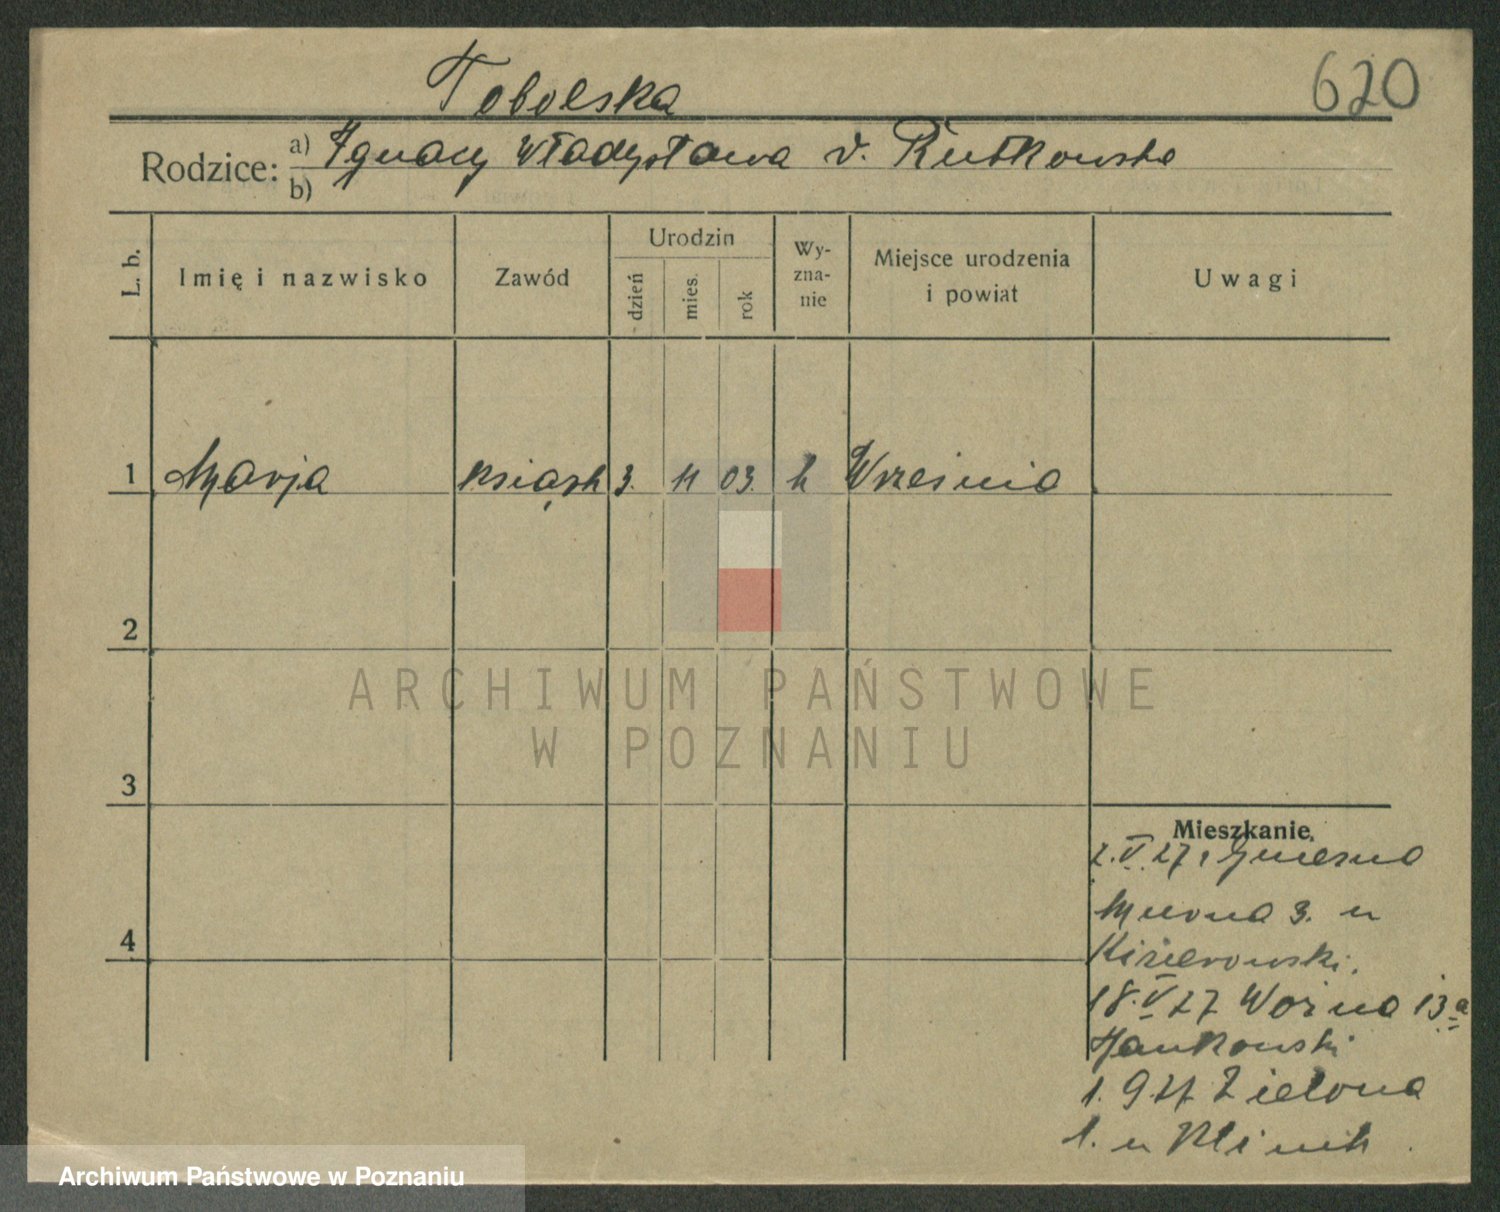 620
Tobolska
Rodzice: a) Ignacy Władysława v. Rutkowska
b)
L. b. Imię i nazwisko Zawód Urodzin dzień mies. rok Wy-zna-nie Miejsce urodzenia i powiat Uwagi
1 Marja książk 3. 11 03. k Września
2
3
4
Mieszkanie
2.V.27. Gniezno
Murna 3. u
Kizierowski.
18.V 27 Woźna 13a
Jankowski
1.9.27 Zielona
1. u Klimek
ARCHIWUM PAŃSTWOWE
W POZNANIU
Archiwum Państwowe w Poznaniu